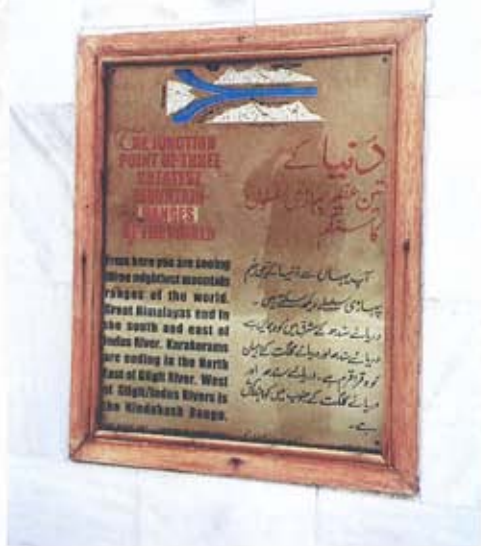 THE JUNCTION
POINT OF THREE
GREATEST
MOUNTAIN
RANGES
OF THE WORLD
From here you are seeing
three mightiest mountain
ranges of the world.
Great Himalayas end in
the south and east of
Indus River. Karakorams
are ending in the North
East of Gilgit River. West
of Gilgit/Indus Rivers is
the Hindukush Range.
دُنیا کے
تین عظیم پہاڑی سلسلوں
کا سنگم
آپ یہاں سے دُنیا کے تین عظیم
پہاڑی سلسلے دیکھ سکتے ہیں ۔
دریائے سندھ کے مشرق میں کوہ ہمالیہ ہے
دریائے سندھ اور دریائے گلگت کے درمیان
کوہ قراقرم ہے ۔ دریائے سندھ اور
دریائے گلگت کے جنوب میں کوہ ہندوکش
ہے ۔